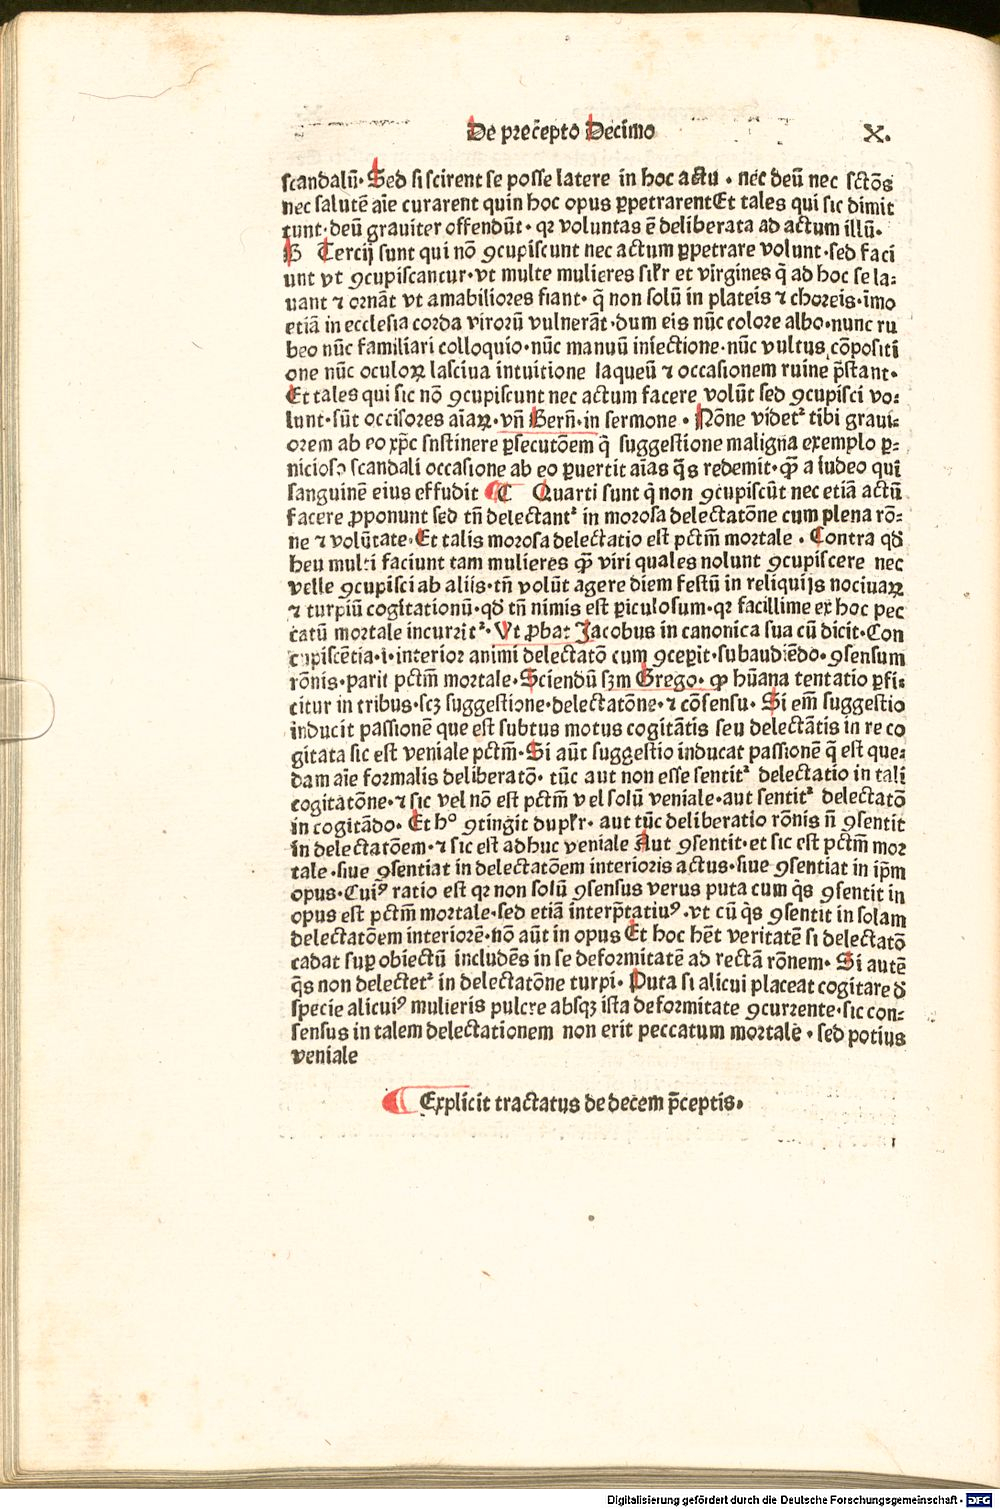 De precepto Decimo X.
scandalū· Sed si scirent se posse latere in hoc actu · nec deū nec sctōs
nec salutē aīe curarent quin hoc opus ꝑpetrarent Et tales qui sic dimit
tunt·deū grauiter offendūt· qꝛ voluntas ē deliberata ad actum illū·
B Tercij sunt qui nō ꝯcupiscunt nec actum ꝑpetrare volunt·sed faci
unt vt ꝯcupiscantur·vt multe mulieres silꝛ et virgines q̄ ad hoc se la⸗
uant ⁊ ornāt vt amabiliores fiant· q̄ non solū in plateis ⁊ choreis·īmo
etiā in ecclesia corda virorū vulnerāt·dum eis nūc colore albo·nunc ru
beo nūc familiari colloquio·nūc manuū iniectione·nūc vultus cōpositi
one nūc oculoꝝ lasciua intuitione laqueū ⁊ occasionem ruine p̄stant·
Et tales qui sic nō ꝯcupiscunt nec actum facere volūt sed ꝯcupisci vo⸗
lunt·sūt occisores aīaꝝ·vn̄ Bern̄·in sermone · Nōne videtᷣ tibi graui⸗
orem ab eo xp̄c snstinere ꝑsecutōem q̄ suggestione maligna exemplo ꝑ⸗
nicioso scandali occasione ab eo ꝑuertit aīas q̄s redemit·qͣꝫ a iudeo qui
sanguinē eius effudit C Quarti sunt q̄ non ꝯcupiscūt nec etiā actū
facere ꝓponunt sed tn̄ delectantᷣ in morosa delectatōne cum plena rō⸗
ne ⁊ volūtate·Et talis morosa delectatio est pctm̄ mortale · Contra qd̄
heu multi faciunt tam mulieres qͣꝫ viri quales nolunt ꝯcupiscere nec
velle ꝯcupisci ab aliis·tn̄ volūt agere diem festū in reliquijs nociuaꝝ
⁊ turpiū cogitationū·qd̄ tn̄ nimis est ꝑiculosum·qꝛ facillime ex hoc pec
catū mortale incurritᷣ·Vt ꝓbat Jacobus in canonica sua cū dicit·Con
cupiscētia·i·interior animi delectatō cum ꝯceperit·subaudiēdo·ꝯsensum
rōnis·parit pctm̄ mortale·Sciendū sꝫm Grego·qͦ hūana tentatio ꝑfi⸗
citur in tribus·scꝫ suggestione·delectatōne·⁊ cōsensu·Si em̄ suggestio
inducit passionē que est subtus motus cogitātis seu delectātis in re co
gitata sic est veniale pctm̄·Si aūt suggestio inducat passionē q̄ est que⸗
dam aīe formalis deliberatō· tūc aut non esse sentitᷣ delectatio in tali
cogitatōne·⁊ sic vel nō est pctm̄ vel solū veniale·aut sentitᷣ delectatō
in cogitādo· Et hͦ ꝯtingit duplꝛ· aut tūc deliberatio rōnis n̄ ꝯsentit
in delectatōem·⁊ sic est adhuc veniale Aut ꝯsentit·et sic est pctm̄ mor
tale·siue ꝯsentiat in delectatōem interioris actus·siue ꝯsentiat in ip̄m
opus·Cuiꝰ ratio est qꝛ non solū ꝯsensus verus puta cum q̄s ꝯsentit in
opus est pctm̄ mortale·sed etiā interp̄tatiuꝰ·vt cū q̄s ꝯsentit in solam
delectatōem interiorē·nō aūt in opus Et hoc hēt veritatē si delectatō
cadat suꝑ obiectū includēs in se deformitatē ad rectā rōnem· Si autē
q̄s non delectetᷣ in delectatōne turpi· Puta si alicui placeat cogitare d̄
specie alicuiꝰ mulieris pulcre absqꝫ ista deformitate ꝯcurrente·sic con⸗
sensus in talem delectationem non erit peccatum mortale · sed potius
veniale
Explicit tractatus de decem p̄ceptis·
Digitalisierung gefördert durch die Deutsche Forschungsgemeinschaft - DFG